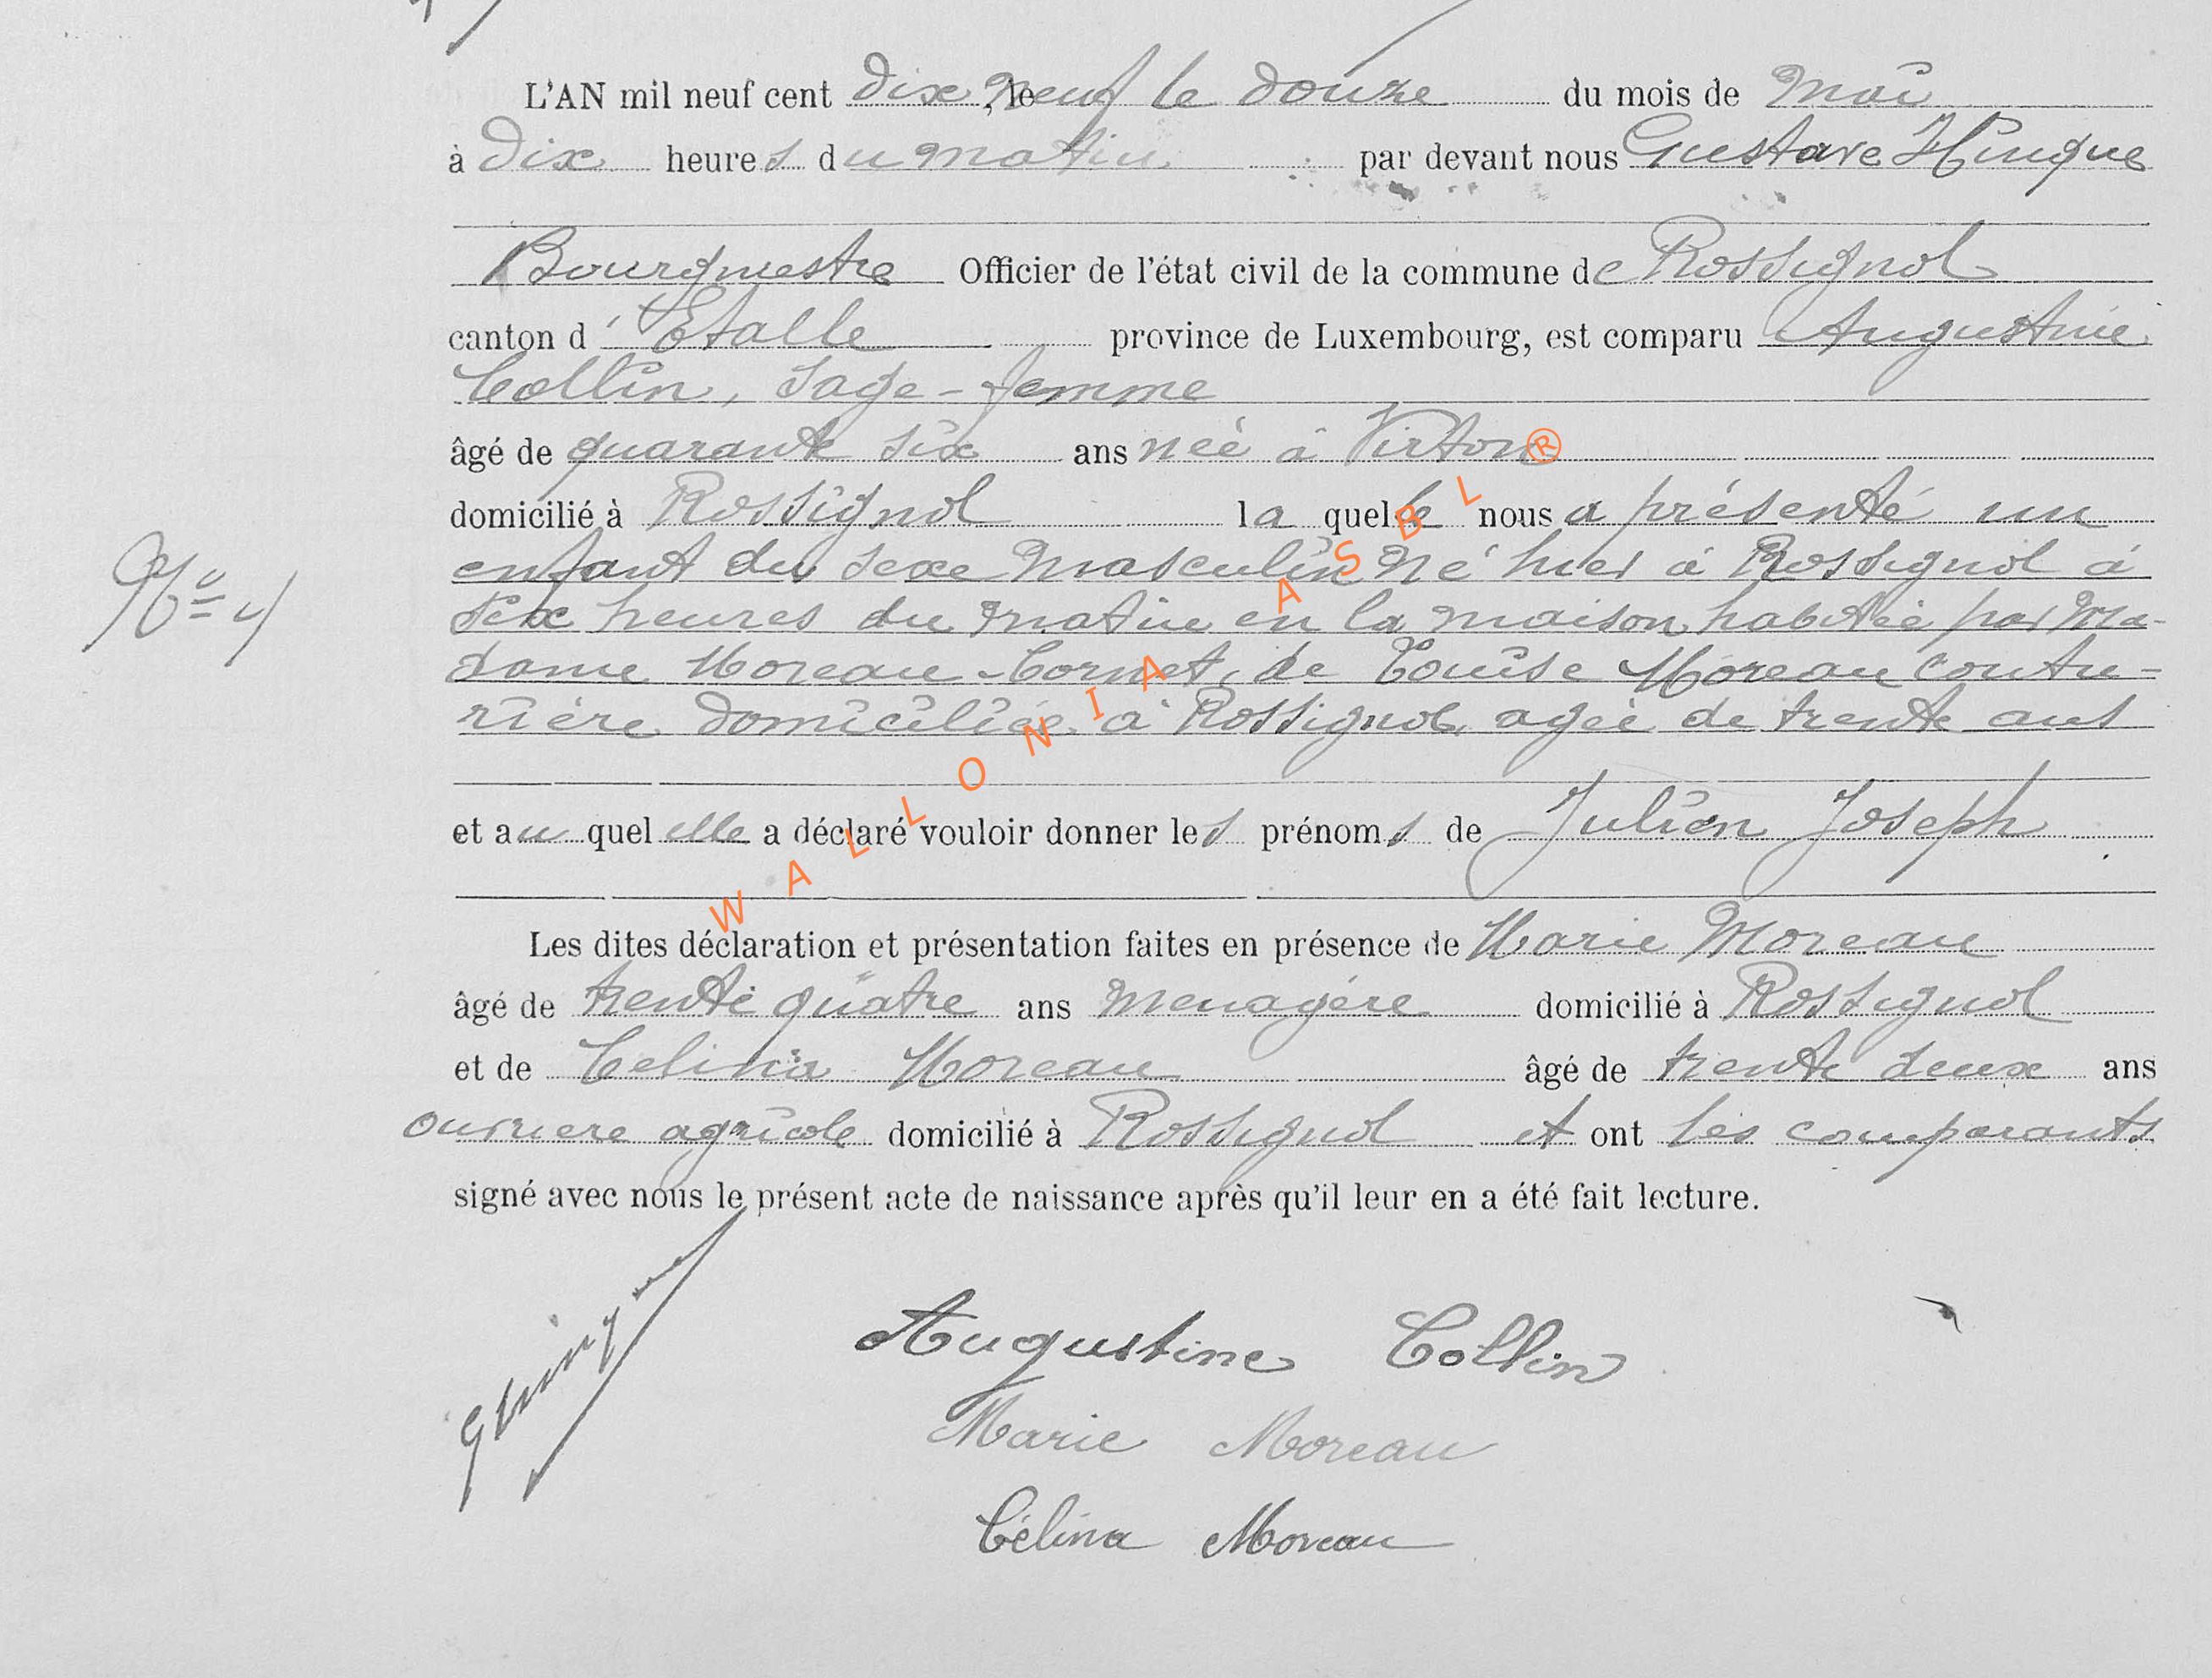 L'AN mil neuf cent dix neuf, le le douze du mois de Mai
à dix heures du matin par devant nous Gustave Hinque
Bourgmestre Officier de l'état civil de la commune de Rossignol
canton d'Etalle province de Luxembourg, est comparu Augustine
Collin, sage-femme
âgé de quarante six ans née à Virton
domicilié à Rossignol la quelle nous a présenté un
enfant du sexe masculin né hier à Rossignol à
N° 4
six heures du matin en la maison habitée par Ma-
dame Moreau-Cornet, de Louise Moreau coutu-
rière domiciliée à Rossignol, agée de trente ans
et au quel elle a déclaré vouloir donner les prénoms de Julien Joseph
Les dites déclaration et présentation faites en présence de Marie Moreau
âgé de trente quatre ans menagère domicilié à Rossignol
et de Celina Moreau âgé de trente deux ans
ouvriere agricole domicilié à Rossignol et ont les comparants
signé avec nous le présent acte de naissance après qu'il leur en a été fait lecture.
Augustine Collin
Marie Moreau
Célina Moreau
WALLONIA ASBL ®